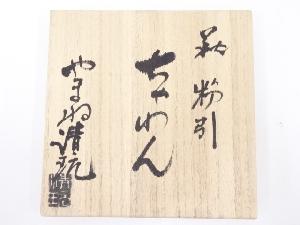 萩 粉引
ちゃわん
やまね清玩